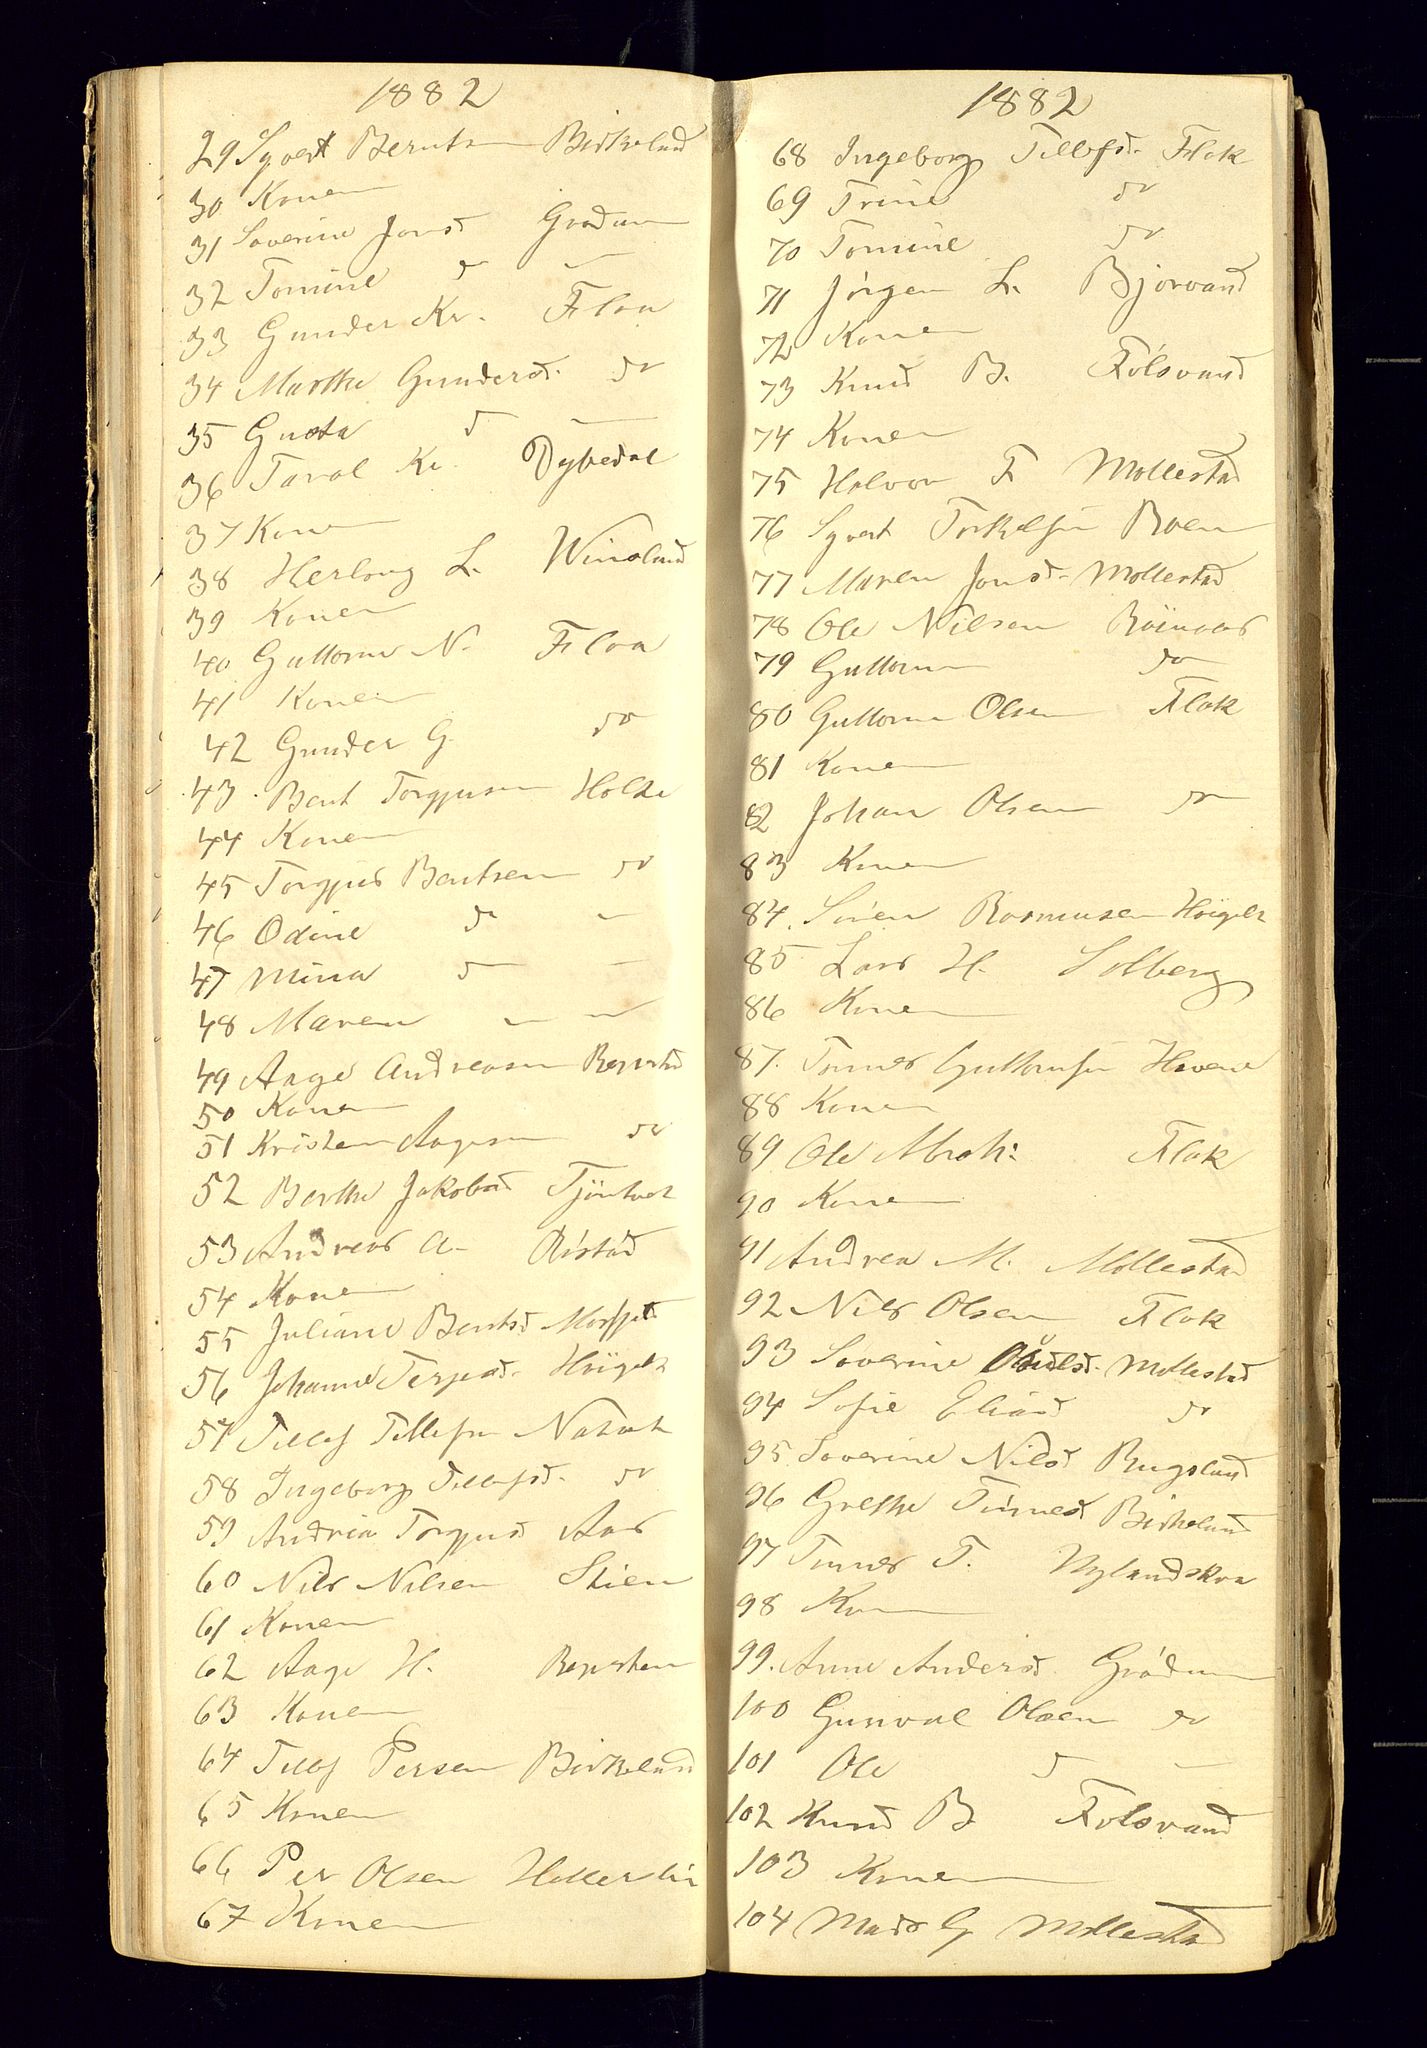 1882
29 Syvert Berntsen Birkeland
30 Konen
31 Soverine Jonsd Grødum
32 Tomine d —
33 Gunder Kr. Flaa
34 Marthe Gundersd. do
35 Gusta d —
36 Taral Kr. Dybedal
37 Konen
38 Herloug L. Winsland
39 Konen
40 Guttorm N. Flaa
41 Konen
42 Gunder G. do
43 Bent Torgjusen Holte
44 Konen
45 Torgjus Bentsen do
46 Odine d —
47 Mina d —
48 Maren — —
49 Aage Andreasen Repstad
50 Konen
51 Kristen Aagesen do
52 Berthe Jakobsd Tjöntvet
53 Andreas A. Ristad
54 Konen
55 Juliane Bentsd
56 Johanne Terjesd. Höigelt
57 Tellef Tellefsen Natvet
58 Ingeborg Tellefsd. do
59 Andria Torgjusd Aas
60 Nils Nilsen Stien
61 Konen
62 Aage H. Repsten
63 Konen
64 Tellef Persen Birkeland
65 Konen
66 Per Olsen
67 Konen
1882
68 Ingeborg Tellefsd. Flak
69 Trine do
70 Tomine do
71 Jørgen L. Bjorvand
72 Konen
73 Knud B. Følsvand
74 Konen
75 Halvor F Mollestad
76 Syvert Torkelsen Boen
77 Maren Jonsd. Mollestad
78 Ole Nilsen Röinaas
79 Guttorm do
80 Guttorm Olsen Flak
81 Konen
82 Johan Olsen do
83 Konen
84. Sören Rasmusen Höigelt
85 Lars H. Solberg
86 Konen
87. Tønnes Guttormsen Havene
88 Konen
89 Ole Abrah: Flak
90 Konen
91 Andrea M. Mollestad
92 Nils Olsen Flak
93 Soverine Mollestad
94 Sofie Eliasd do
95 Soverine Nilsd Rugsland
96 Grethe Tønnesd Birkeland
97 Tønnes T. Nylandskra
98 Konen
99. Anne Andersd. Grødum
100 Gunval Olsen do
101 Ole d —
102 Knud B Følsvand
103 Konen
104 Mads G Mollestad